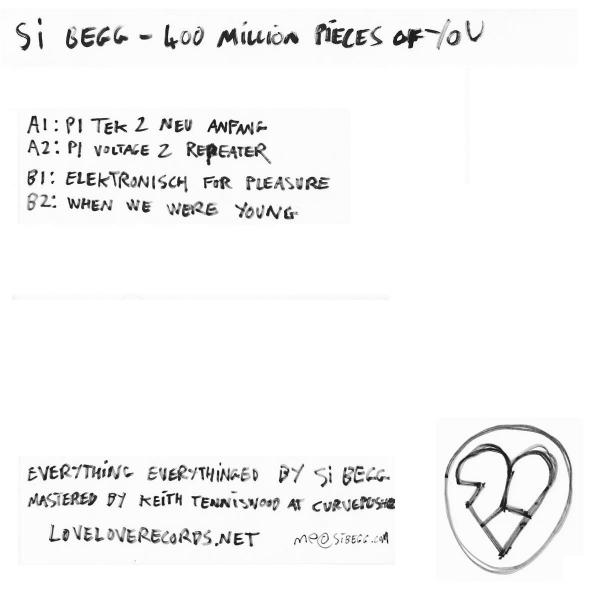 Si BEGG - 400 MilliON PiECES OF YOU
A1: PI TEK 2 NEU ANFANG
A2: PI VOLTAGE 2 REPEATER
B1: ELEKTRONISCH FOR PLEASURE
B2: WHEN WE WERE YOUNG
EVERYTHiNG EVERYTHINGED BY Si BEGG
MASTERED BY KEITH TENNISWOOD AT CURVEPUSHER
LOVELOVERECORDS.NET
me@SiBEGG.COM